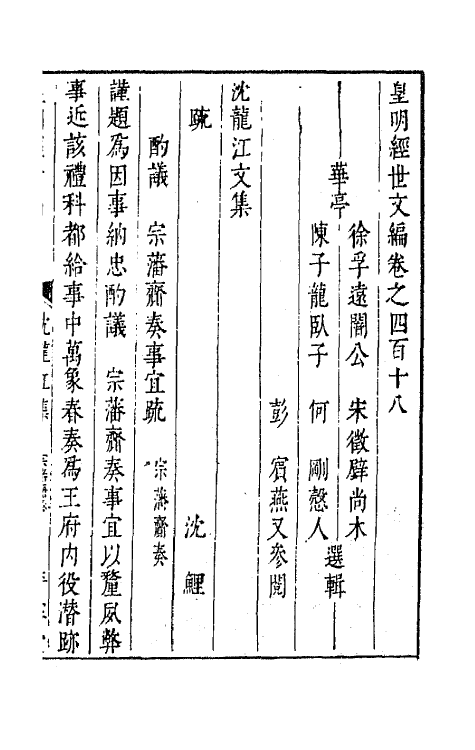 皇明經世文編卷之四百十八
華亭
徐孚遠闇公 宋徵璧尚木
陳子龍臥子 何 剛愨人
選輯
彭 賓燕又參閱
沈龍江文集
疏 沈 鯉
酌議 宗藩齋奏事宜疏 宗藩齋奏
謹題爲因事納忠酌議 宗藩齋奏事宜以釐夙弊
事近該禮科都給事中萬象春奏爲王府内役潜跡